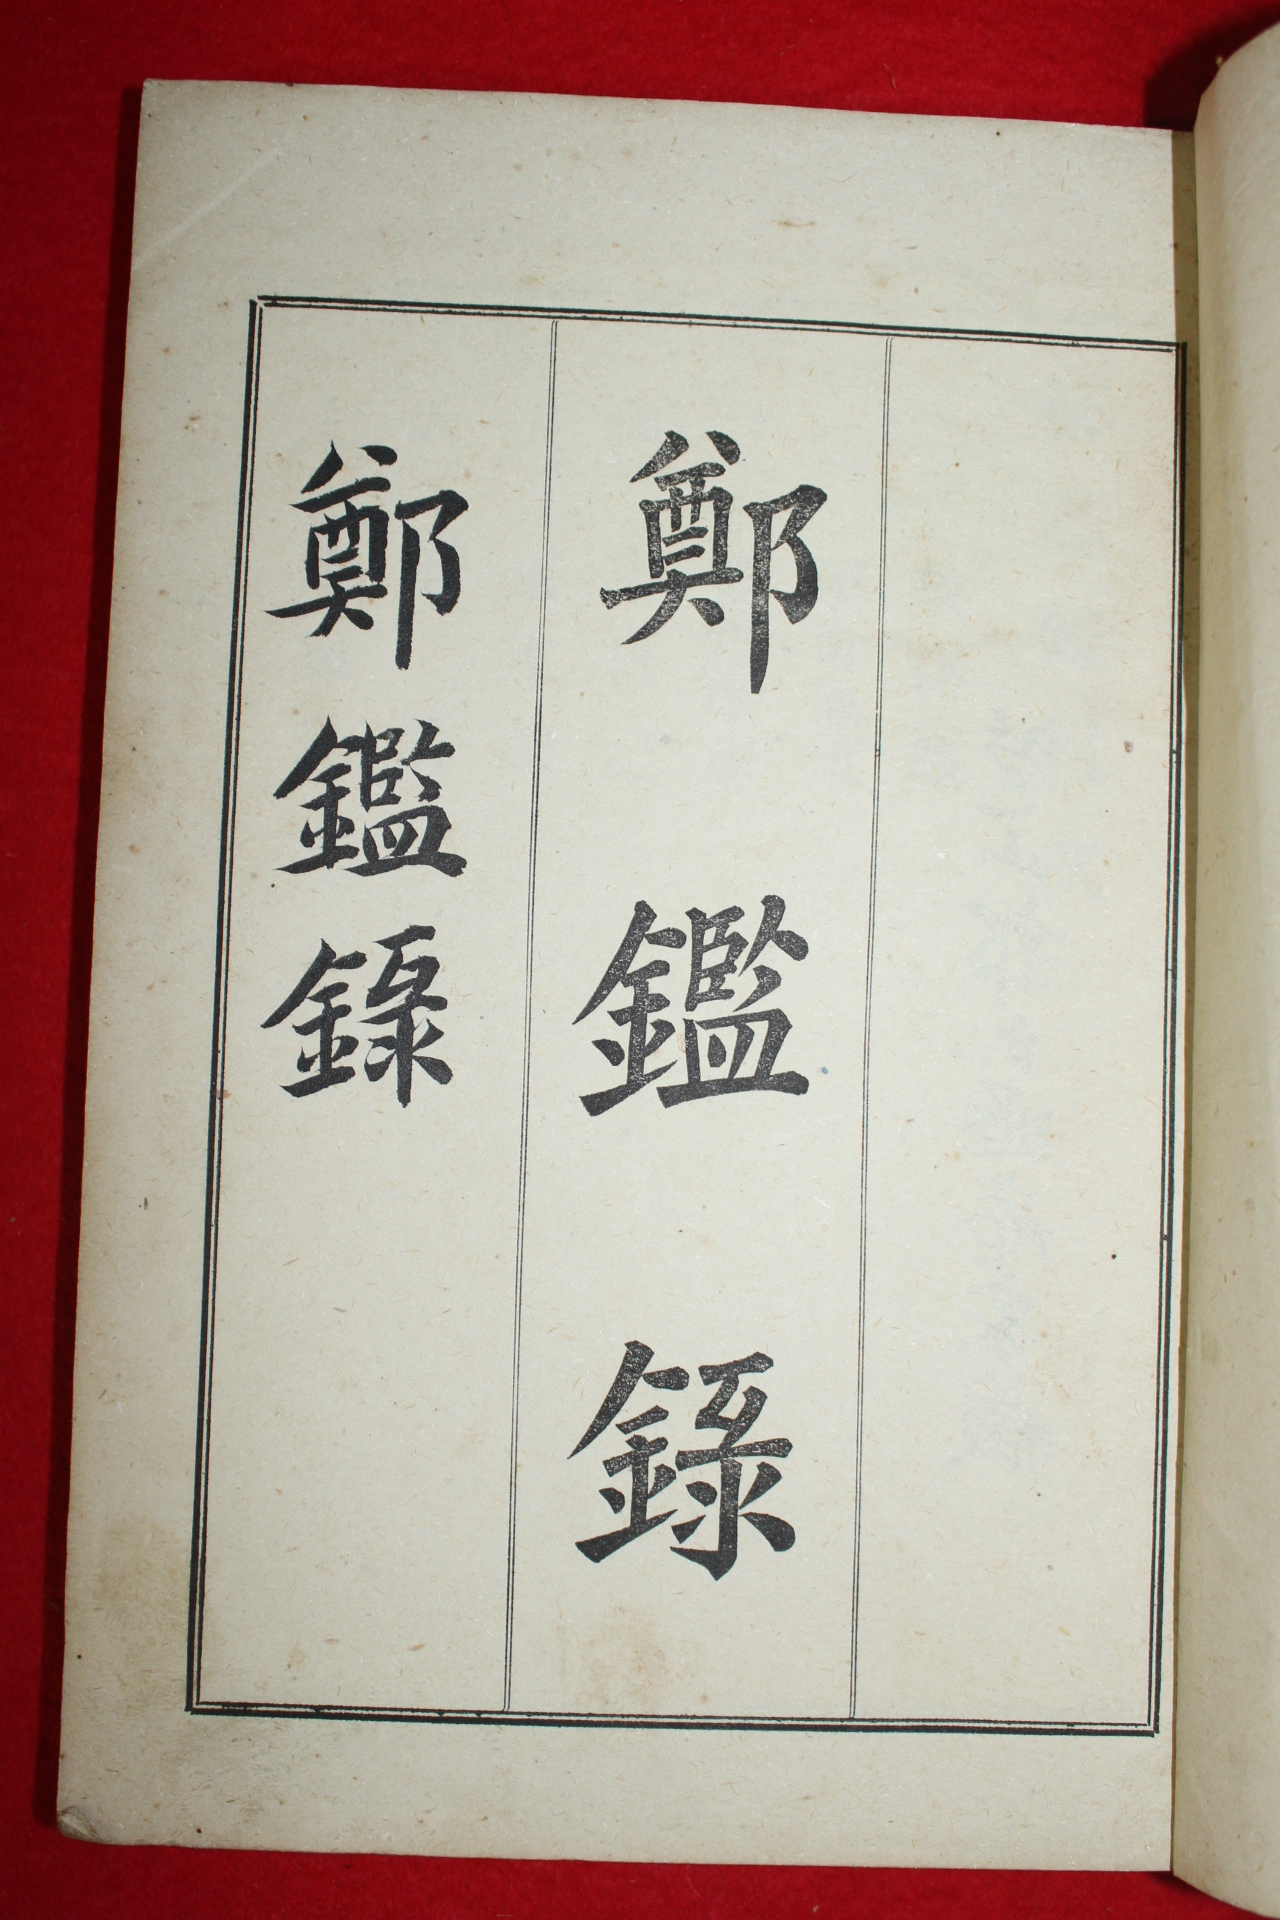 鄭鑑錄
鄭鑑錄